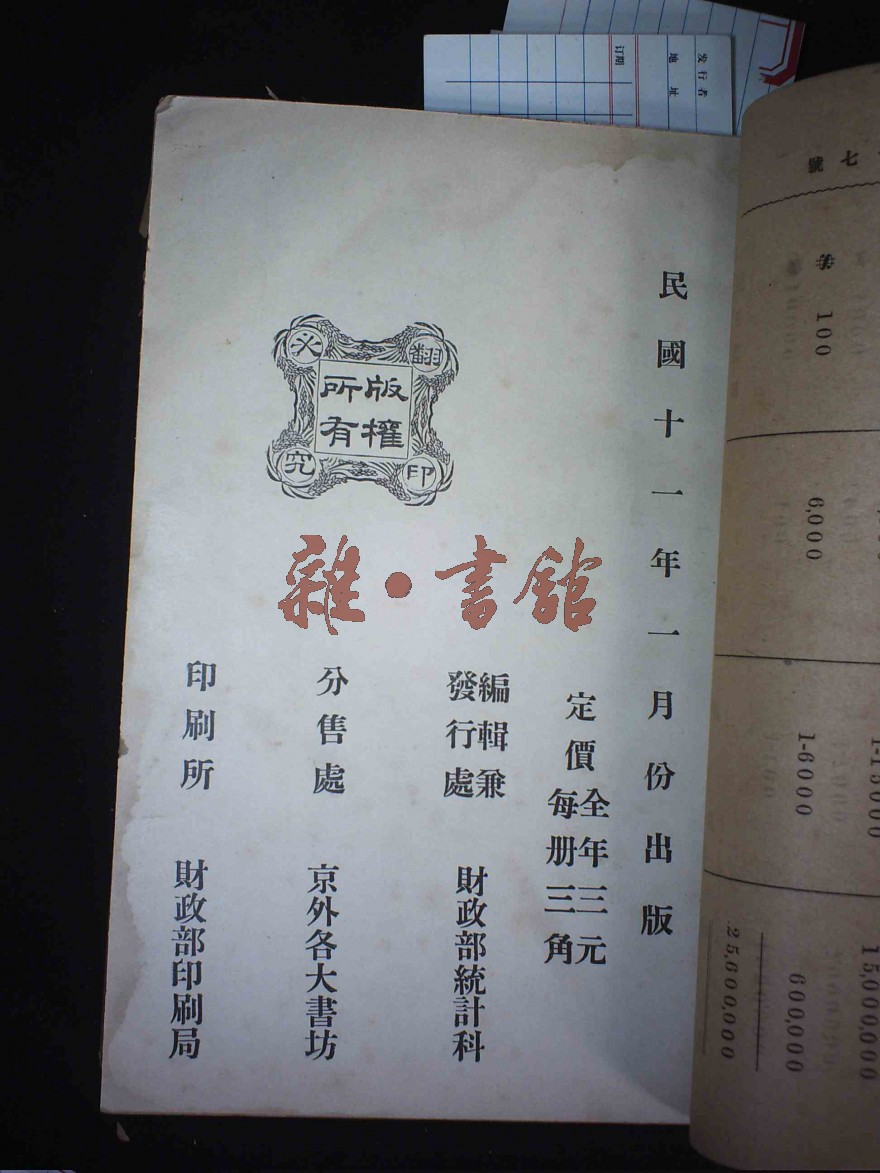 民國十一年一月份出版
定價
全年三元
每册三角
編輯兼
發行處
財政部統計科
分售處
京外各大書坊
印刷所
財政部印刷局
版權
所有
翻印必究
雜·書館
发行者
地址
订期
七號
100
6,000
1-6000
600,000
1-15000
15,000,000
25,600,000